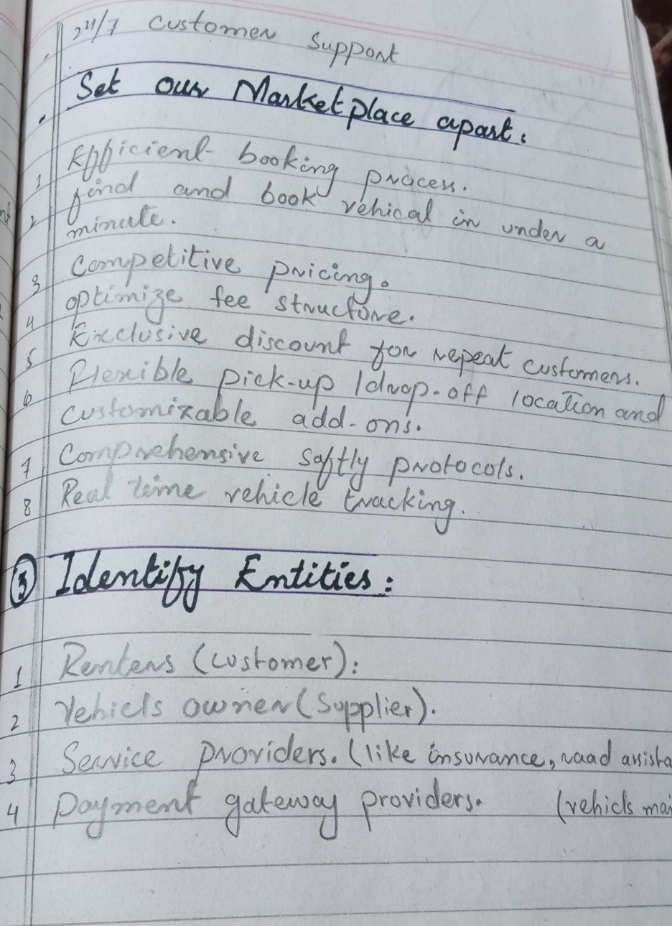 24/7 Customer Support
Set our Marketplace apart:
1 Efficient booking process.
2 find and book vehical in under a
minute.
3 Competitive pricing.
4 optimize fee structure.
5 Exclusive discount for repeat customers.
6 Flexible pick-up /drop-off location and
Customizable add-ons.
7 Comprehensive saftly protocols.
8 Real time vehicle tracking.
③ Identify Entities:
1 Renters (customer):
2 Vehicls owner (Supplier).
3 Service providers. (like insurance, raod assista
4 Payment gateway providers. (vehicls mai